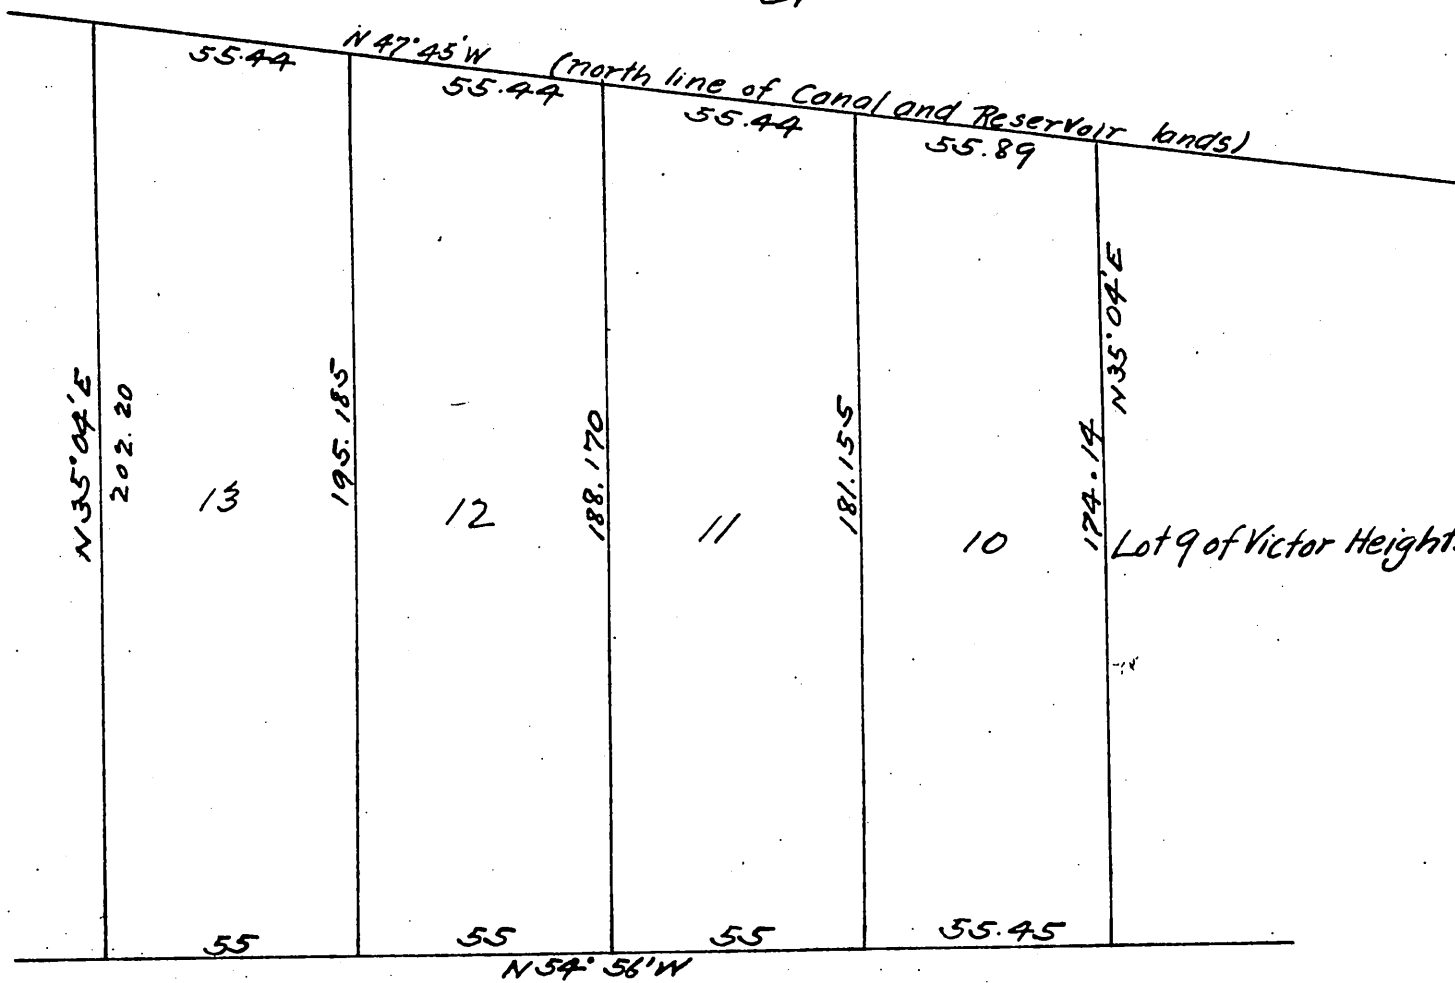 N 47°45'W (north line of Canal and Reservoir lands)
55.44
55.44
55.44
55.89
N35°04'E
202.20
13
195.185
12
188.170
11
181.155
10
174.14
N35°04'E
Lot 9 of Victor Heights
55
55
55
55.45
N 54° 56' W